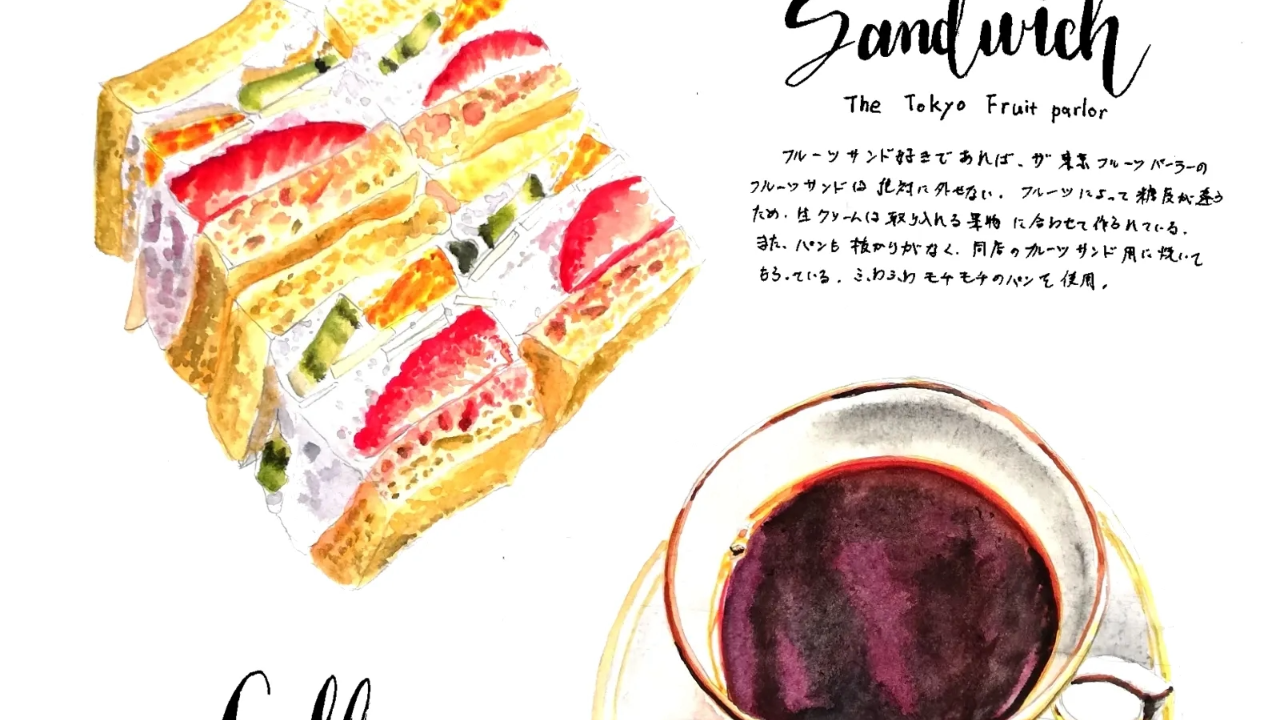 Sandwich
The Tokyo Fruit parlor
フルーツサンド好きであれば、ザ 東京フルーツパーラーの
フルーツサンドは絶対に外せない。フルーツによって糖度が違う
ため、生クリームは取り入れる果物に合わせて作られている。
また、パンも抜かりがなく、同店のフルーツサンド用に焼いて
もらっている。ふわふわモチモチのパンを使用。